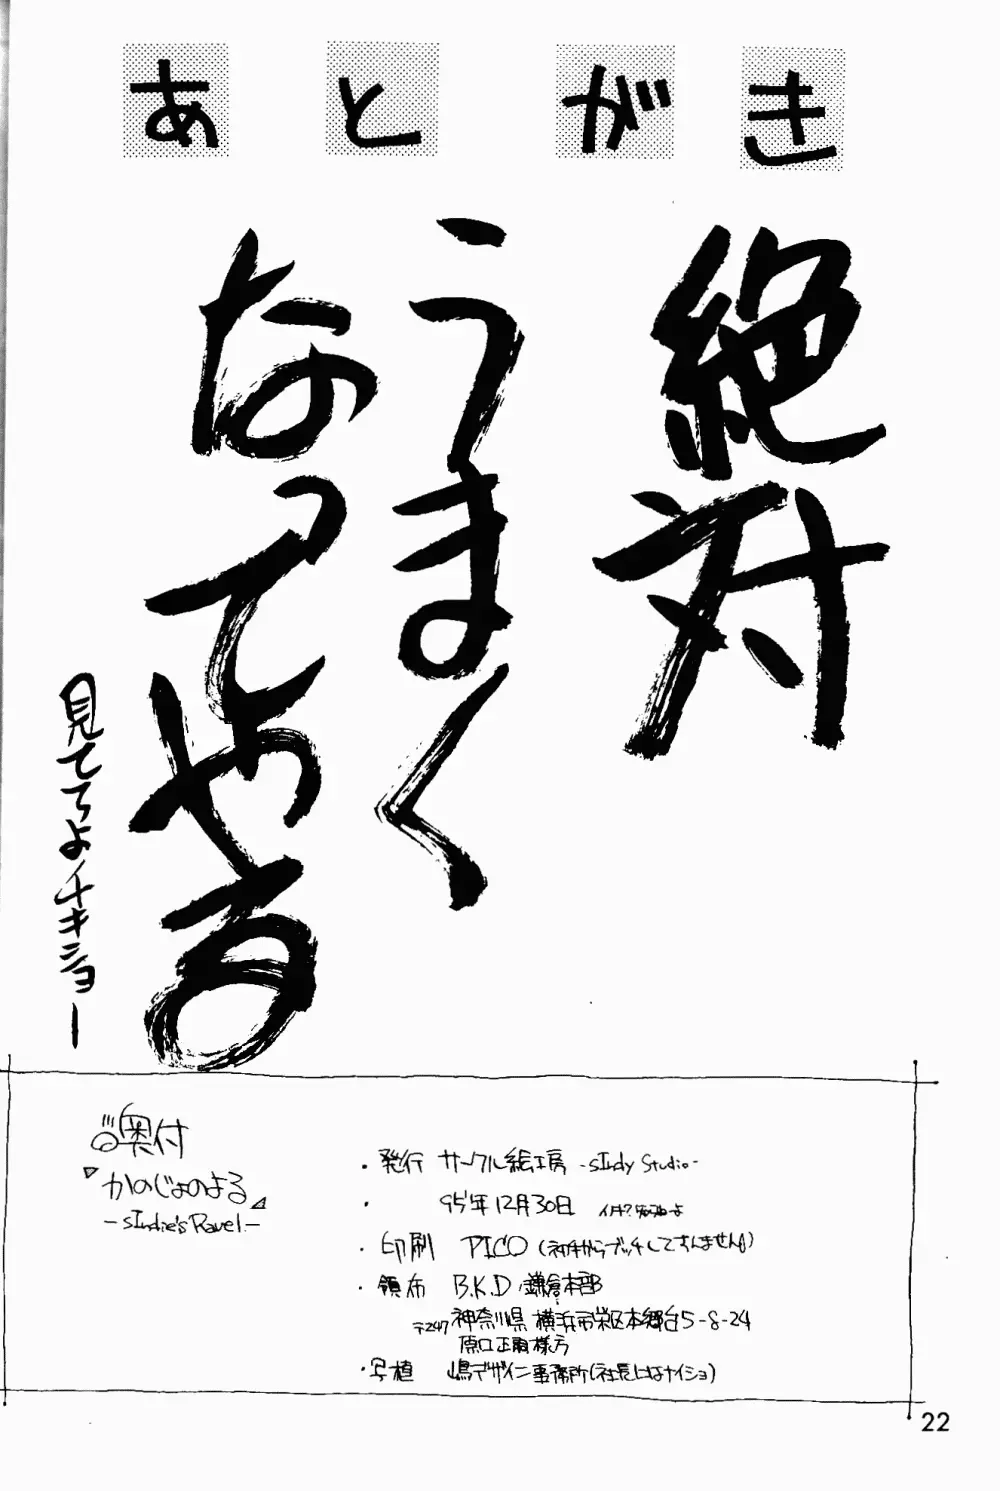 あとがき
絶対
うまく
なってやる
見てろよチキショー
奥付
「かのじょのよる」
-sIndie's Ravel-
・発行 サークル絵工房 -sIndy Studio-
・ 95年12月30日
・印刷 PICO
・領布 B.K.D 鎌倉本部
〒247 神奈川県横浜市栄区本郷台5-8-24
・写植 嶋デザイン事務所(社長にはナイショ)
22